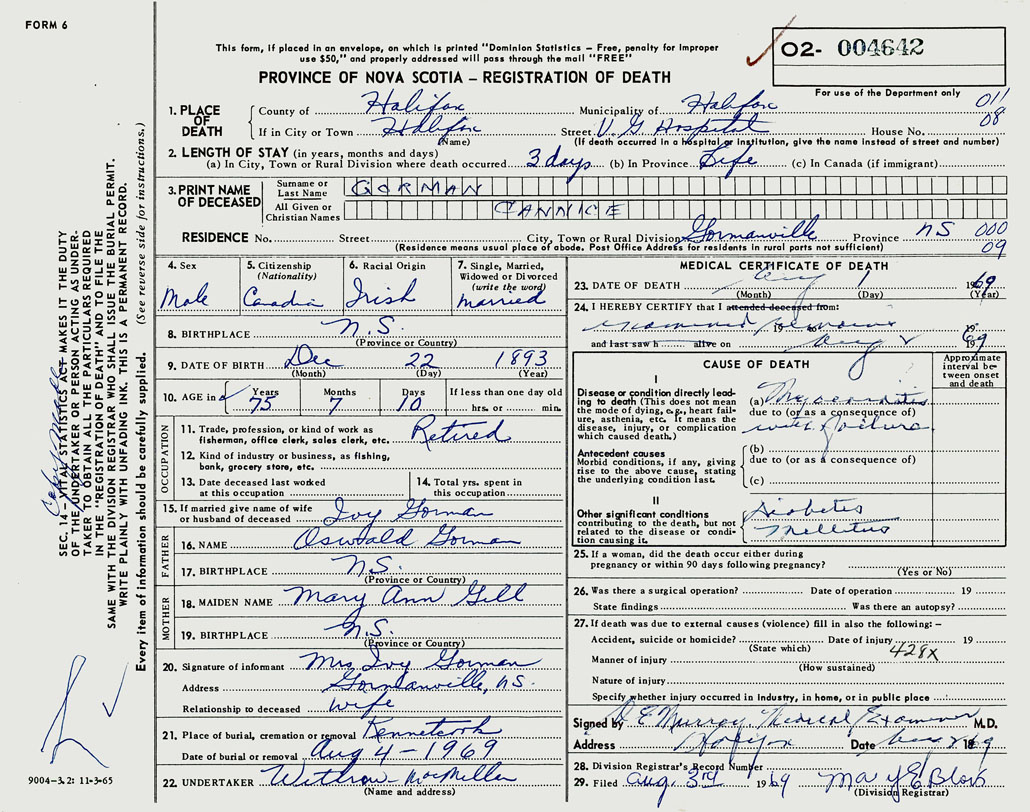 FORM 6
This form, if placed in an envelope, on which is printed "Dominion Statistics – Free, penalty for improper
use $50," and properly addressed will pass through the mail "FREE"
PROVINCE OF NOVA SCOTIA – REGISTRATION OF DEATH
02- 004642
For use of the Department only
011
08
1. PLACE OF DEATH
County of Halifax Municipality of Halifax
If in City or Town Halifax Street V. G. Hospital House No.
(Name) (If death occurred in a hospital or institution, give the name instead of street and number)
2. LENGTH OF STAY (in years, months and days)
(a) In City, Town or Rural Division where death occurred 3 days (b) In Province Life (c) In Canada (if immigrant)
3. PRINT NAME OF DECEASED
Surname or Last Name GORMAN
All Given or Christian Names CANNICE
RESIDENCE No. Street City, Town or Rural Division Gormanville Province NS 000
(Residence means usual place of abode. Post Office Address for residents in rural parts not sufficient) 09
4. Sex Male
5. Citizenship (Nationality) Canadian
6. Racial Origin Irish
7. Single, Married, Widowed or Divorced (write the word) Married
8. BIRTHPLACE N.S.
(Province or Country)
9. DATE OF BIRTH Dec 22 1893
(Month) (Day) (Year)
10. AGE in Years 75 Months 7 Days 10 If less than one day old
hrs. or min.
OCCUPATION
11. Trade, profession, or kind of work as
fisherman, office clerk, sales clerk, etc. Retired
12. Kind of industry or business, as fishing,
bank, grocery store, etc.
13. Date deceased last worked
at this occupation
14. Total yrs. spent in
this occupation
15. If married give name of wife
or husband of deceased Ivy Gorman
FATHER
16. NAME Oswald Gorman
17. BIRTHPLACE N.S.
(Province or Country)
MOTHER
18. MAIDEN NAME Mary Ann Gill
19. BIRTHPLACE N.S.
(Province or Country)
20. Signature of informant Mrs Ivy Gorman
Address Gormanville, N.S.
Relationship to deceased Wife
21. Place of burial, cremation or removal Kennetcook
Date of burial or removal Aug 4 - 1969
22. UNDERTAKER Withrow - MacMillan
(Name and address)
MEDICAL CERTIFICATE OF DEATH
23. DATE OF DEATH Aug 1 1969
(Month) (Day) (Year)
24. I HEREBY CERTIFY that I attended deceased from:
examined remains 19
and last saw h alive on Aug 2 1969
CAUSE OF DEATH
Approximate interval between onset and death
I
Disease or condition directly leading to death (This does not mean
the mode of dying, e.g., heart failure, asthenia, etc. It means the
disease, injury, or complication
which caused death.)
(a) Myocarditis
due to (or as a consequence of)
with failure
Antecedent causes
Morbid conditions, if any, giving
rise to the above cause, stating
the underlying condition last.
(b)
due to (or as a consequence of)
(c)
II
Other significant conditions
contributing to the death, but not
related to the disease or condition causing it.
Diabetes
Mellitus
25. If a woman, did the death occur either during
pregnancy or within 90 days following pregnancy?
(Yes or No)
26. Was there a surgical operation? Date of operation 19
State findings Was there an autopsy?
27. If death was due to external causes (violence) fill in also the following: –
Accident, suicide or homicide? Date of injury 19
(State which) 428X
Manner of injury
(How sustained)
Nature of injury
Specify whether injury occurred in industry, in home, or in public place
Signed by Murray Medical Examiner M.D.
Address Halifax Date Aug 2 1969
28. Division Registrar's Record Number
29. Filed Aug. 3rd 1969 May E. Blois
(Division Registrar)
SEC. 14 – VITAL STATISTICS ACT MAKES IT THE DUTY
OF THE UNDERTAKER OR PERSON ACTING AS UNDERTAKER TO OBTAIN ALL THE PARTICULARS REQUIRED
IN THE "REGISTRATION OF DEATH" AND TO FILE THE
SAME WITH THE DIVISION REGISTRAR WHO SHALL ISSUE THE BURIAL PERMIT.
WRITE PLAINLY WITH UNFADING INK. THIS IS A PERMANENT RECORD.
Every item of information should be carefully supplied. (See reverse side for instructions.)
9004-3.2: 11-3-65